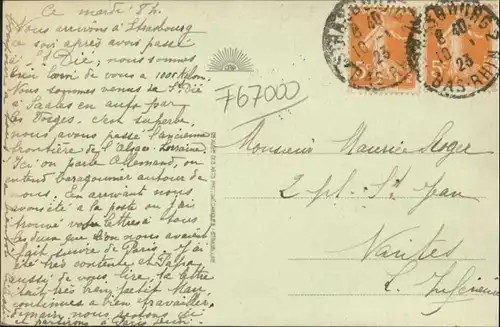 Ce mardi 8h.
Nous arrivons à Strasbourg
ce soir après avoir passé
à St Dié, nous sommes
bien loin de vous a 1000 Kilom.
Nous sommes venus de St Dié
à Saales en auto par
les Vosges. c'est superbe,
nous avons passé l'ancienne
frontière de l'Alsace-Lorraine.
Ici on parle Allemand, on
entend baragouiner autour de
nous. En arrivant nous
avons été a la poste ou j'ai
trouvé votre lettre à tous
les deux que l'on nous avait
fait suivre de Paris. J'ai
été très contente et Papa
aussi de vous lire, la lettre
était très bien, petit Mau
continues a bien travailler,
Demain nous
et partirons à Paris
F67000
Monsieur Maurice Roger
2 pl. St Jean
Nantes
L. Inférieure
STRASBOURG
8 40
23
BAS-RHIN
STRASBOURG
8 40
23
BAS-RHIN